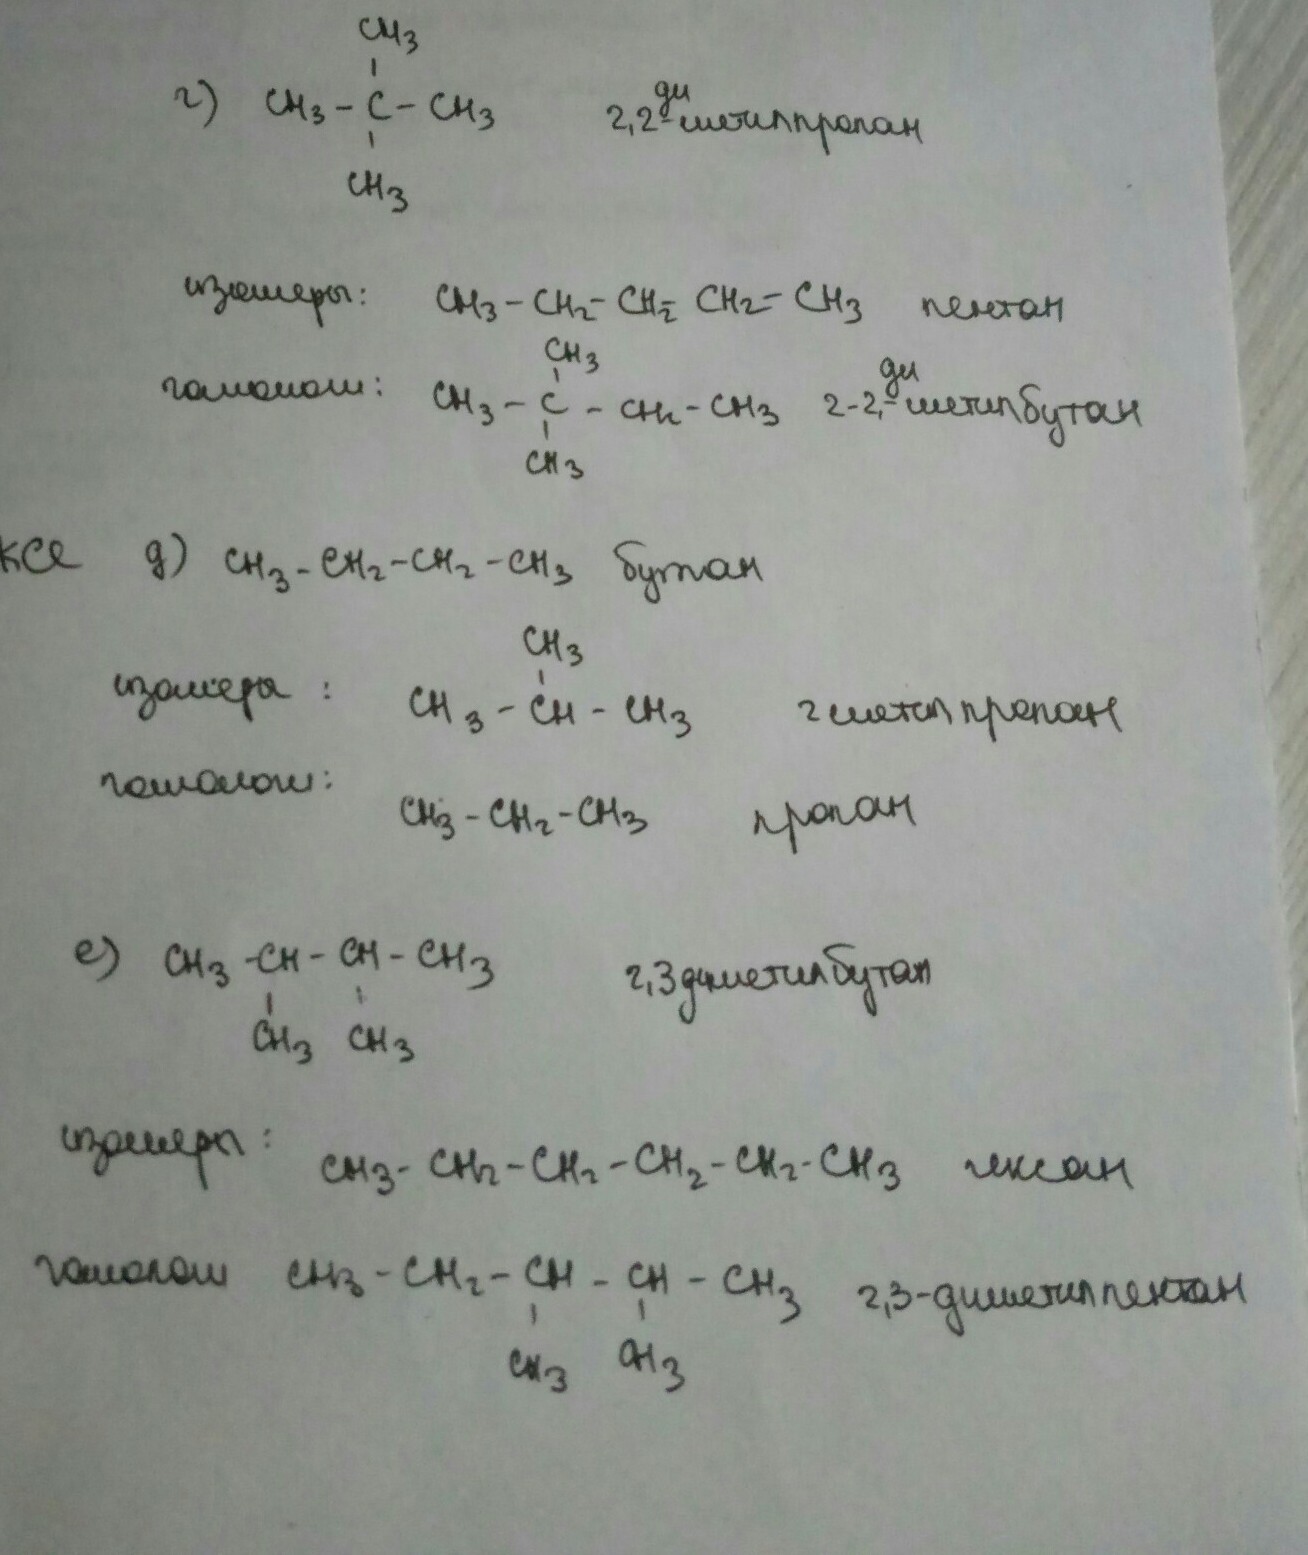 CH3
г) CH3 - C - CH3 2,2-диметилпропан
CH3
изомеры: CH3 - CH2 - CH2 - CH2 - CH3 пентан
CH3
гомологи: CH3 - C - CH2 - CH3 2-2,-диметилбутан
CH3
KCl д) CH3 - CH2 - CH2 - CH3 бутан
CH3
изомеры : CH3 - CH - CH3 2 метил пропан
гомологи:
CH3 - CH2 - CH3 пропан
е) CH3 - CH - CH - CH3 2,3 диметилбутан
CH3 CH3
изомеры :
CH3 - CH2 - CH2 - CH2 - CH2 - CH3 гексан
гомологи CH3 - CH2 - CH - CH - CH3 2,3-диметилпентан
CH3 CH3